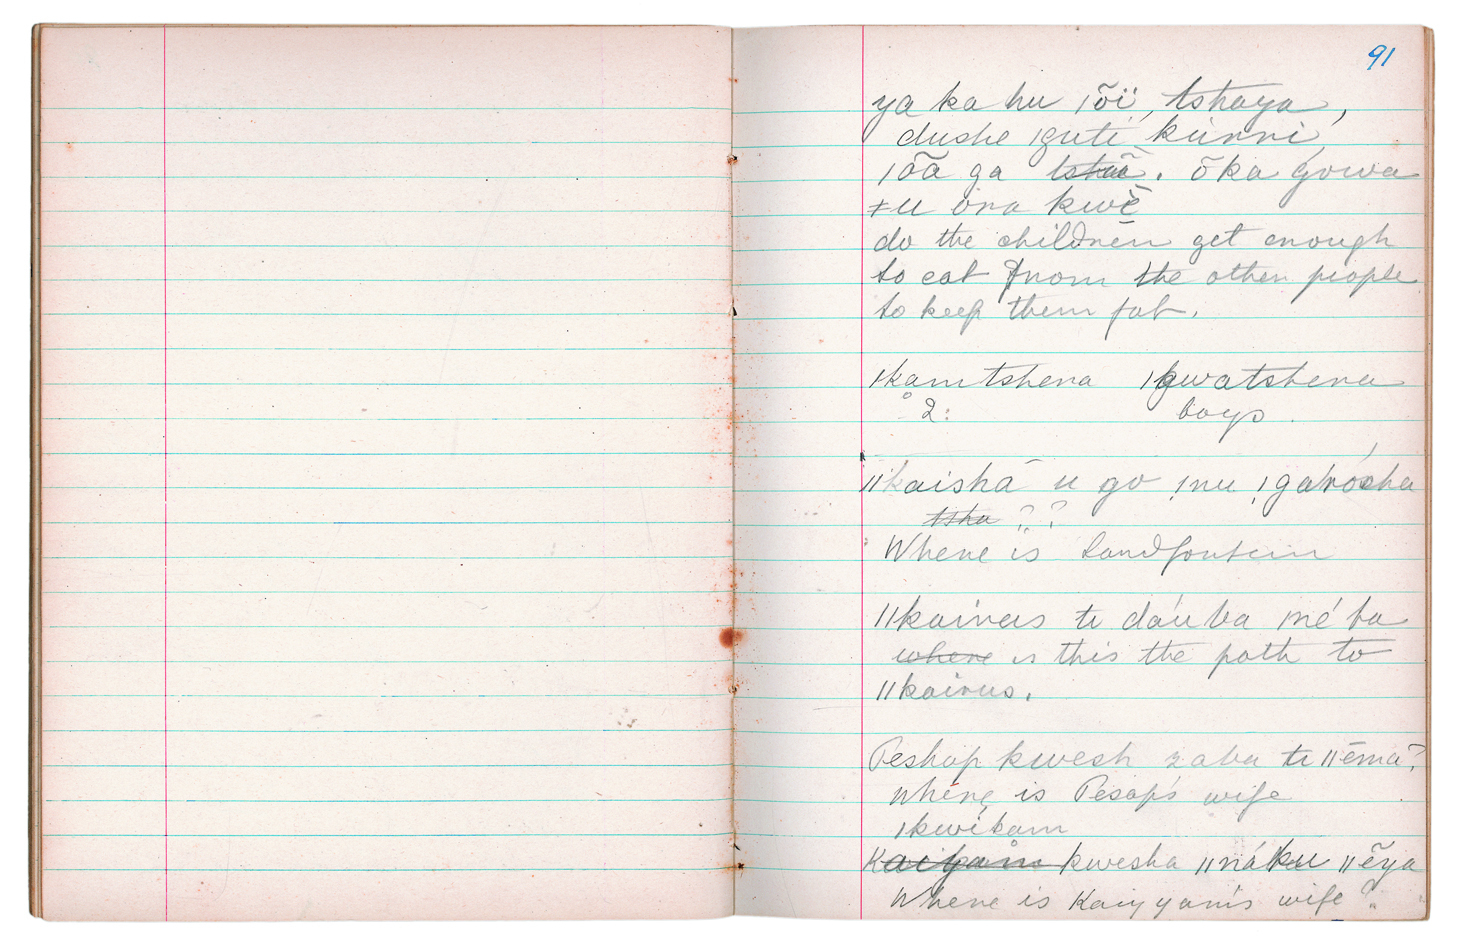 91
ya ka hu |õï, tshaya,
dushe |guti kúnni,
|õã ga tshũã. õka gowa
ǂu ona kwẽ
do the children get enough
to eat from the other people
to keep them fat.
|kamtshena |gwatshena
2: boys.
||kaishā u go |nu |garósha
tsha ??
Where is Sandfontein
||kairus te dáuba mé ba
where is this the path to
||kairus.
Peshop kwesh zaba te ||ẽma?
where is Pesop's wife
|kwíkam
Kaiyam kwesha ||náku ||ẽya
Where is Kaiyyam's wife?